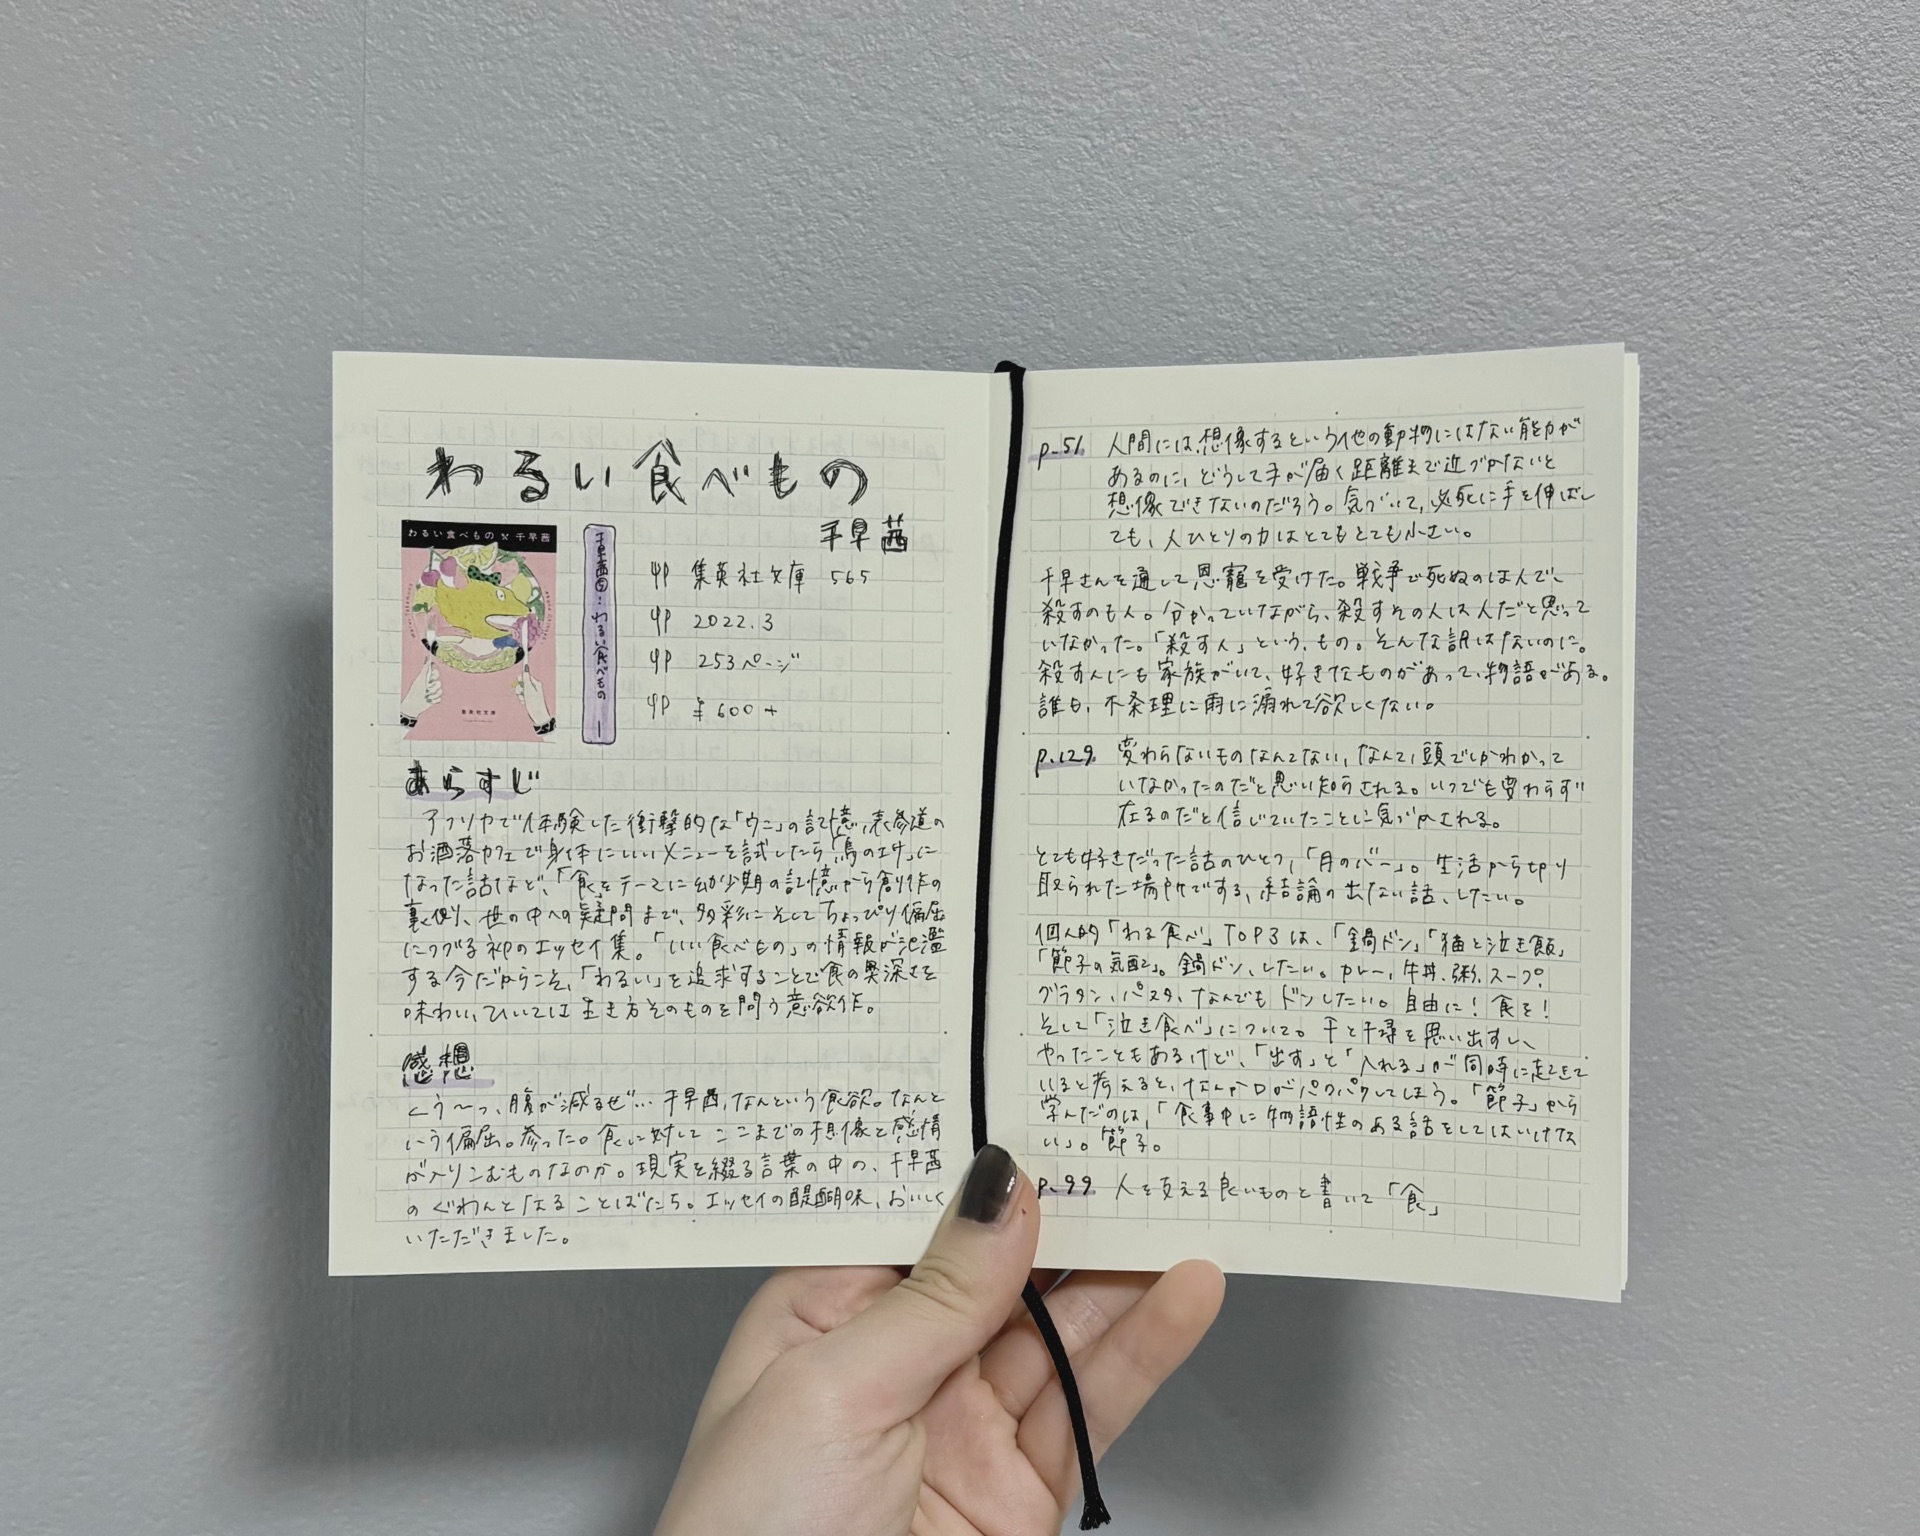 わるい食べもの
千早茜
わるい食べもの 千早茜
集英社文庫
千早茜①:わるい食べもの
集英社文庫 565
2022.3
253ページ
¥600+
あらすじ
アフリカで体験した衝撃的な「ウニ」の記憶、表参道の
お洒落カフェで身体にいいメニューを試したら「鳥のエサ」に
なった話など、「食をテーマに幼少期の記憶から創作の
裏側、世の中への疑問まで、多彩にそしてちょっぴり偏屈
につづる初のエッセイ集。「いい食べもの」の情報が氾濫
する今だからこそ、「わるい」を追求することで食の奥深さを
味わい、ひいては生き方そのものを問う意欲作。
感想
くぅ〜っ、腹が減るぜ… 千早茜、なんという食欲。なんと
いう偏屈。参った。食に対してここまでの想像と感情
が入りこむものなのか。現実を綴る言葉の中の、千早茜
のぐわんとなることばたち。エッセイの醍醐味、おいしく
いただきました。
p.51 人間には、想像するという他の動物にはない能力が
あるのに、どうして手が届く距離まで近づかないと
想像できないのだろう。気づいて、必死に手を伸ばし
ても、人ひとりの力はとてもとても小さい。
千早さんを通して恩寵を受けた。戦争で死ぬのは人で、
殺すのも人。分かっていながら、殺すその人は人だと思って
いなかった。「殺す人」という、もの。そんな訳はないのに。
殺す人にも家族がいて、好きなものがあって、物語がある。
誰も、不条理に雨に溺れて欲しくない。
p.129 変わらないものなんてない、なんて、頭でしかわかって
いなかったのだと思い知らされる。いつでも変わらず
在るのだと信じていたことに気づかされる。
とても好きだった話のひとつ、「月のバー」。生活から切り
取られた場所でする、結論の出ない話、したい。
個人的「わる食べ」TOP3は、「鍋ドン」「猫と泣き飯」
「節子の気配」。鍋ドン、したい。カレー、牛丼、粥、スープ、
グラタン、パスタ、なんでもドンしたい。自由に!食を!
そして「泣き食べ」について。千と千尋を思い出すし、
やったこともあるけど、「出す」と「入れる」が同時に起きて
いると考えると、なんか口がパクパクしてしまう。「節子」から
学んだのは、「食事中に物語性のある話をしてはいけな
い」。節子。
p.99 人を支える良いものと書いて「食」